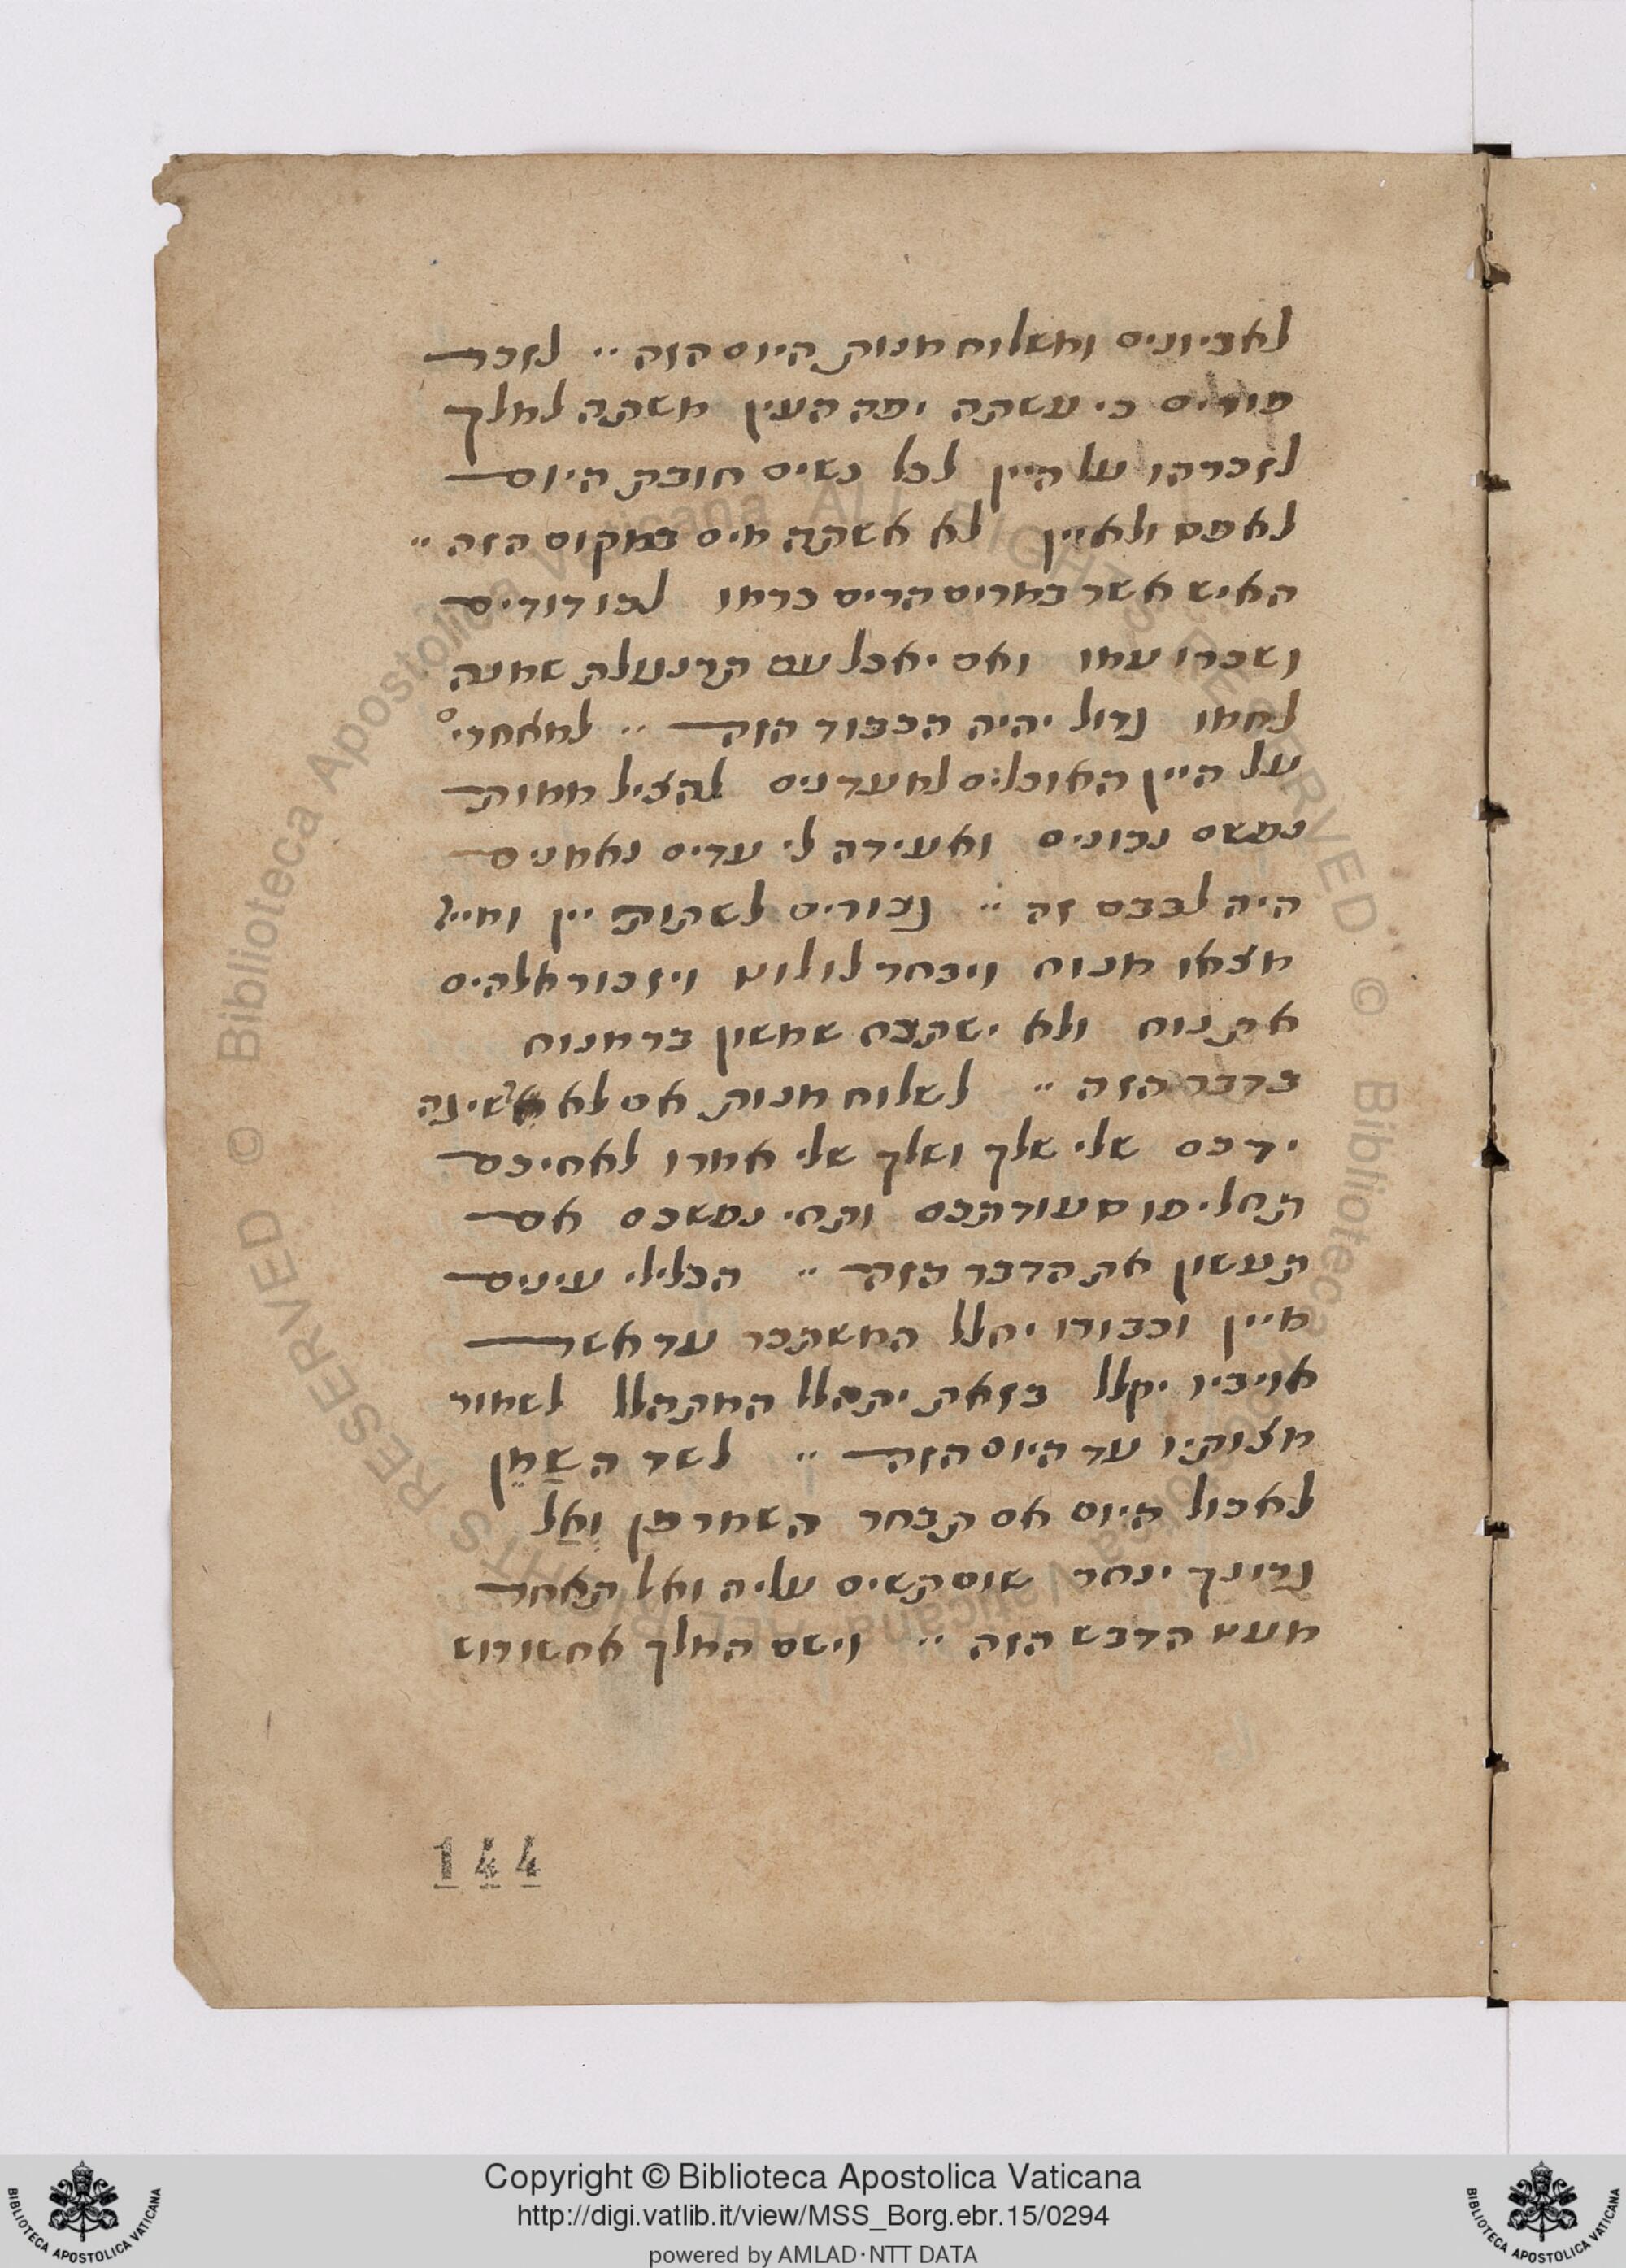 לאביונים ומשלוח מנות היום הזה ·· לזכר
פורים כי עשתה יפה העין משתה למלך
לזכרהו על היין לכל נשים חובת היום
לאפס ולאיין לא אשתה מים במקום הזה ··
האיש אשר במרום הרים כרמו לכו דודים
ושכרו עמו ואם יאכל עם תרנגולת שמנה
לחמו גדול יהיה הכבוד הזה ·· למאחרי°
על היין האוכלים למעדנים להציל ממות
נפשם נכונים ואעידה לי עדים נאמנים
היה לבבם זה ·· גבורים לשתות יין וחיי׳
מצאו מנוח ויבחר לולוט ויזכור אלהים
את נוח ולא ישתצח שמשון בר מנוח
בדבר הזה ·· לשלוח מנות אם לא תשיגה
ידכם שלי שלך ושלך שלי אמרו לאחיכם
תחליפו סעודתכם ותחי נפשכם אם
תעשון את הדבר הזה ·· הכלילי עינים
מיין וכבודו יחלל המשתכר עד אשר
אויביו יקלל בזאת יתהלל המתהלל לשמור
מצותיו עד היום הזה ·· לשד השמן
לאכול היום אם תבחר השמר פן ואל
גרונך ינחר שום תשים עליה ואל תאחר
מעט הדבש הזה ·· וישם המלך אחשורוש
144
Copyright © Biblioteca Apostolica Vaticana
http://digi.vatlib.it/view/MSS_Borg.ebr.15/0294
powered by AMLAD·NTT DATA